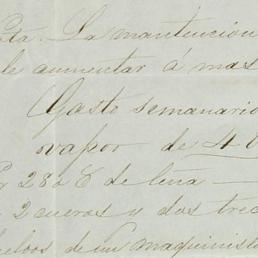 Nota. La mantención
de aumentar á mas
Gasto semanario
vapor de 4
Por 28 de leña —
2 cueros y dos ter
sueldos de un maquinista